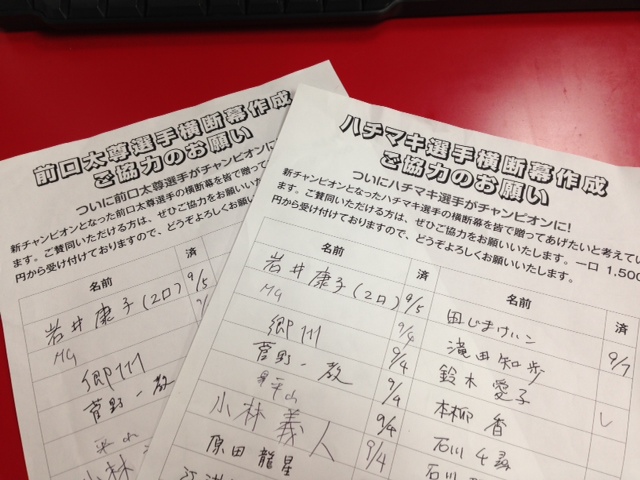 前口太尊選手横断幕作成
ご協力のお願い
ついに前口太尊選手がチャンピオンに
新チャンピオンとなった前口太尊選手の横断幕を皆で贈って
ます。ご賛同いただける方は、ぜひご協力をお願いいた
円から受け付けておりますので、どうぞよろしくお願い
名前 済
岩井康子(2口) 9/5
MG
郷州
菅野一教
平山
小林
ハチマキ選手横断幕作成
ご協力のお願い
ついにハチマキ選手がチャンピオンに!
新チャンピオンとなったハチマキ選手の横断幕を皆で贈ってあげたいと考えてい
ます。ご賛同いただける方は、ぜひご協力をお願いいたします。一口 1,500
円から受け付けておりますので、どうぞよろしくお願いいたします。
名前 済 名前 済
岩井康子(2口) 9/5 田じまけいこ
MG 9/4 滝田知歩 9/7
郷州 9/4 鈴木愛子
菅野一教 9/4 本柳香
平山 9/4 石川千尋
小林義人 9/4 石川
原田龍星